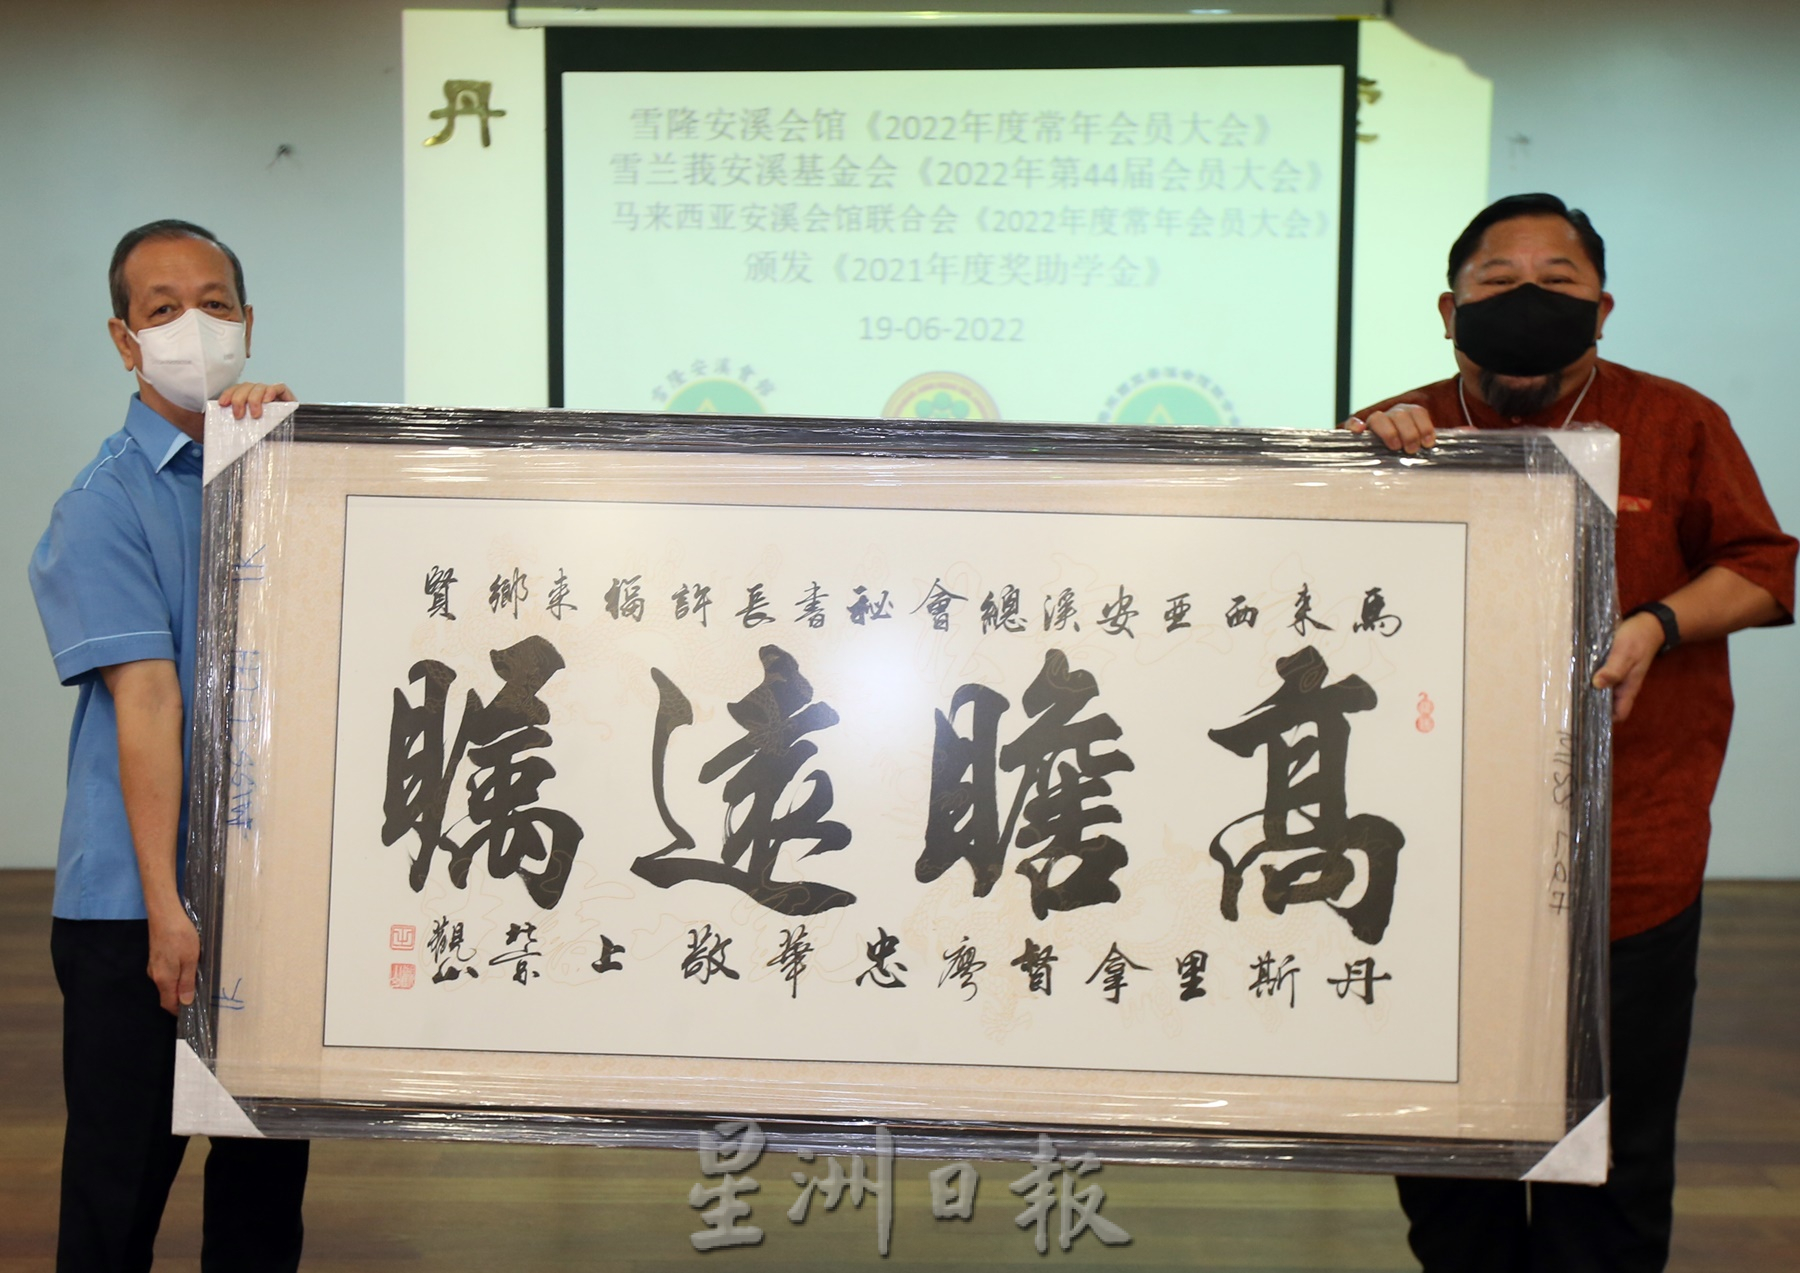 丹
雪隆安溪会馆《2022年度常年会员大会》
雪兰莪安溪基金会《2022年第44届会员大会》
马来西亚安溪会馆联合会《2022年度常年会员大会》
颁发《2021年度奖助学金》
19-06-2022
雪隆安溪會館
馬來西亚安溪總會秘書長許福来鄉賢
高瞻遠矚
丹斯里拿督廖忠華敬上
觀山
星洲日報